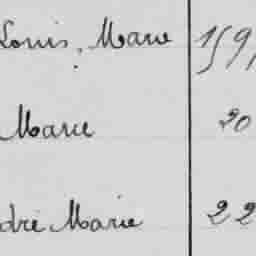 Louis, Marie 159
Marie 20
dré Marie 22